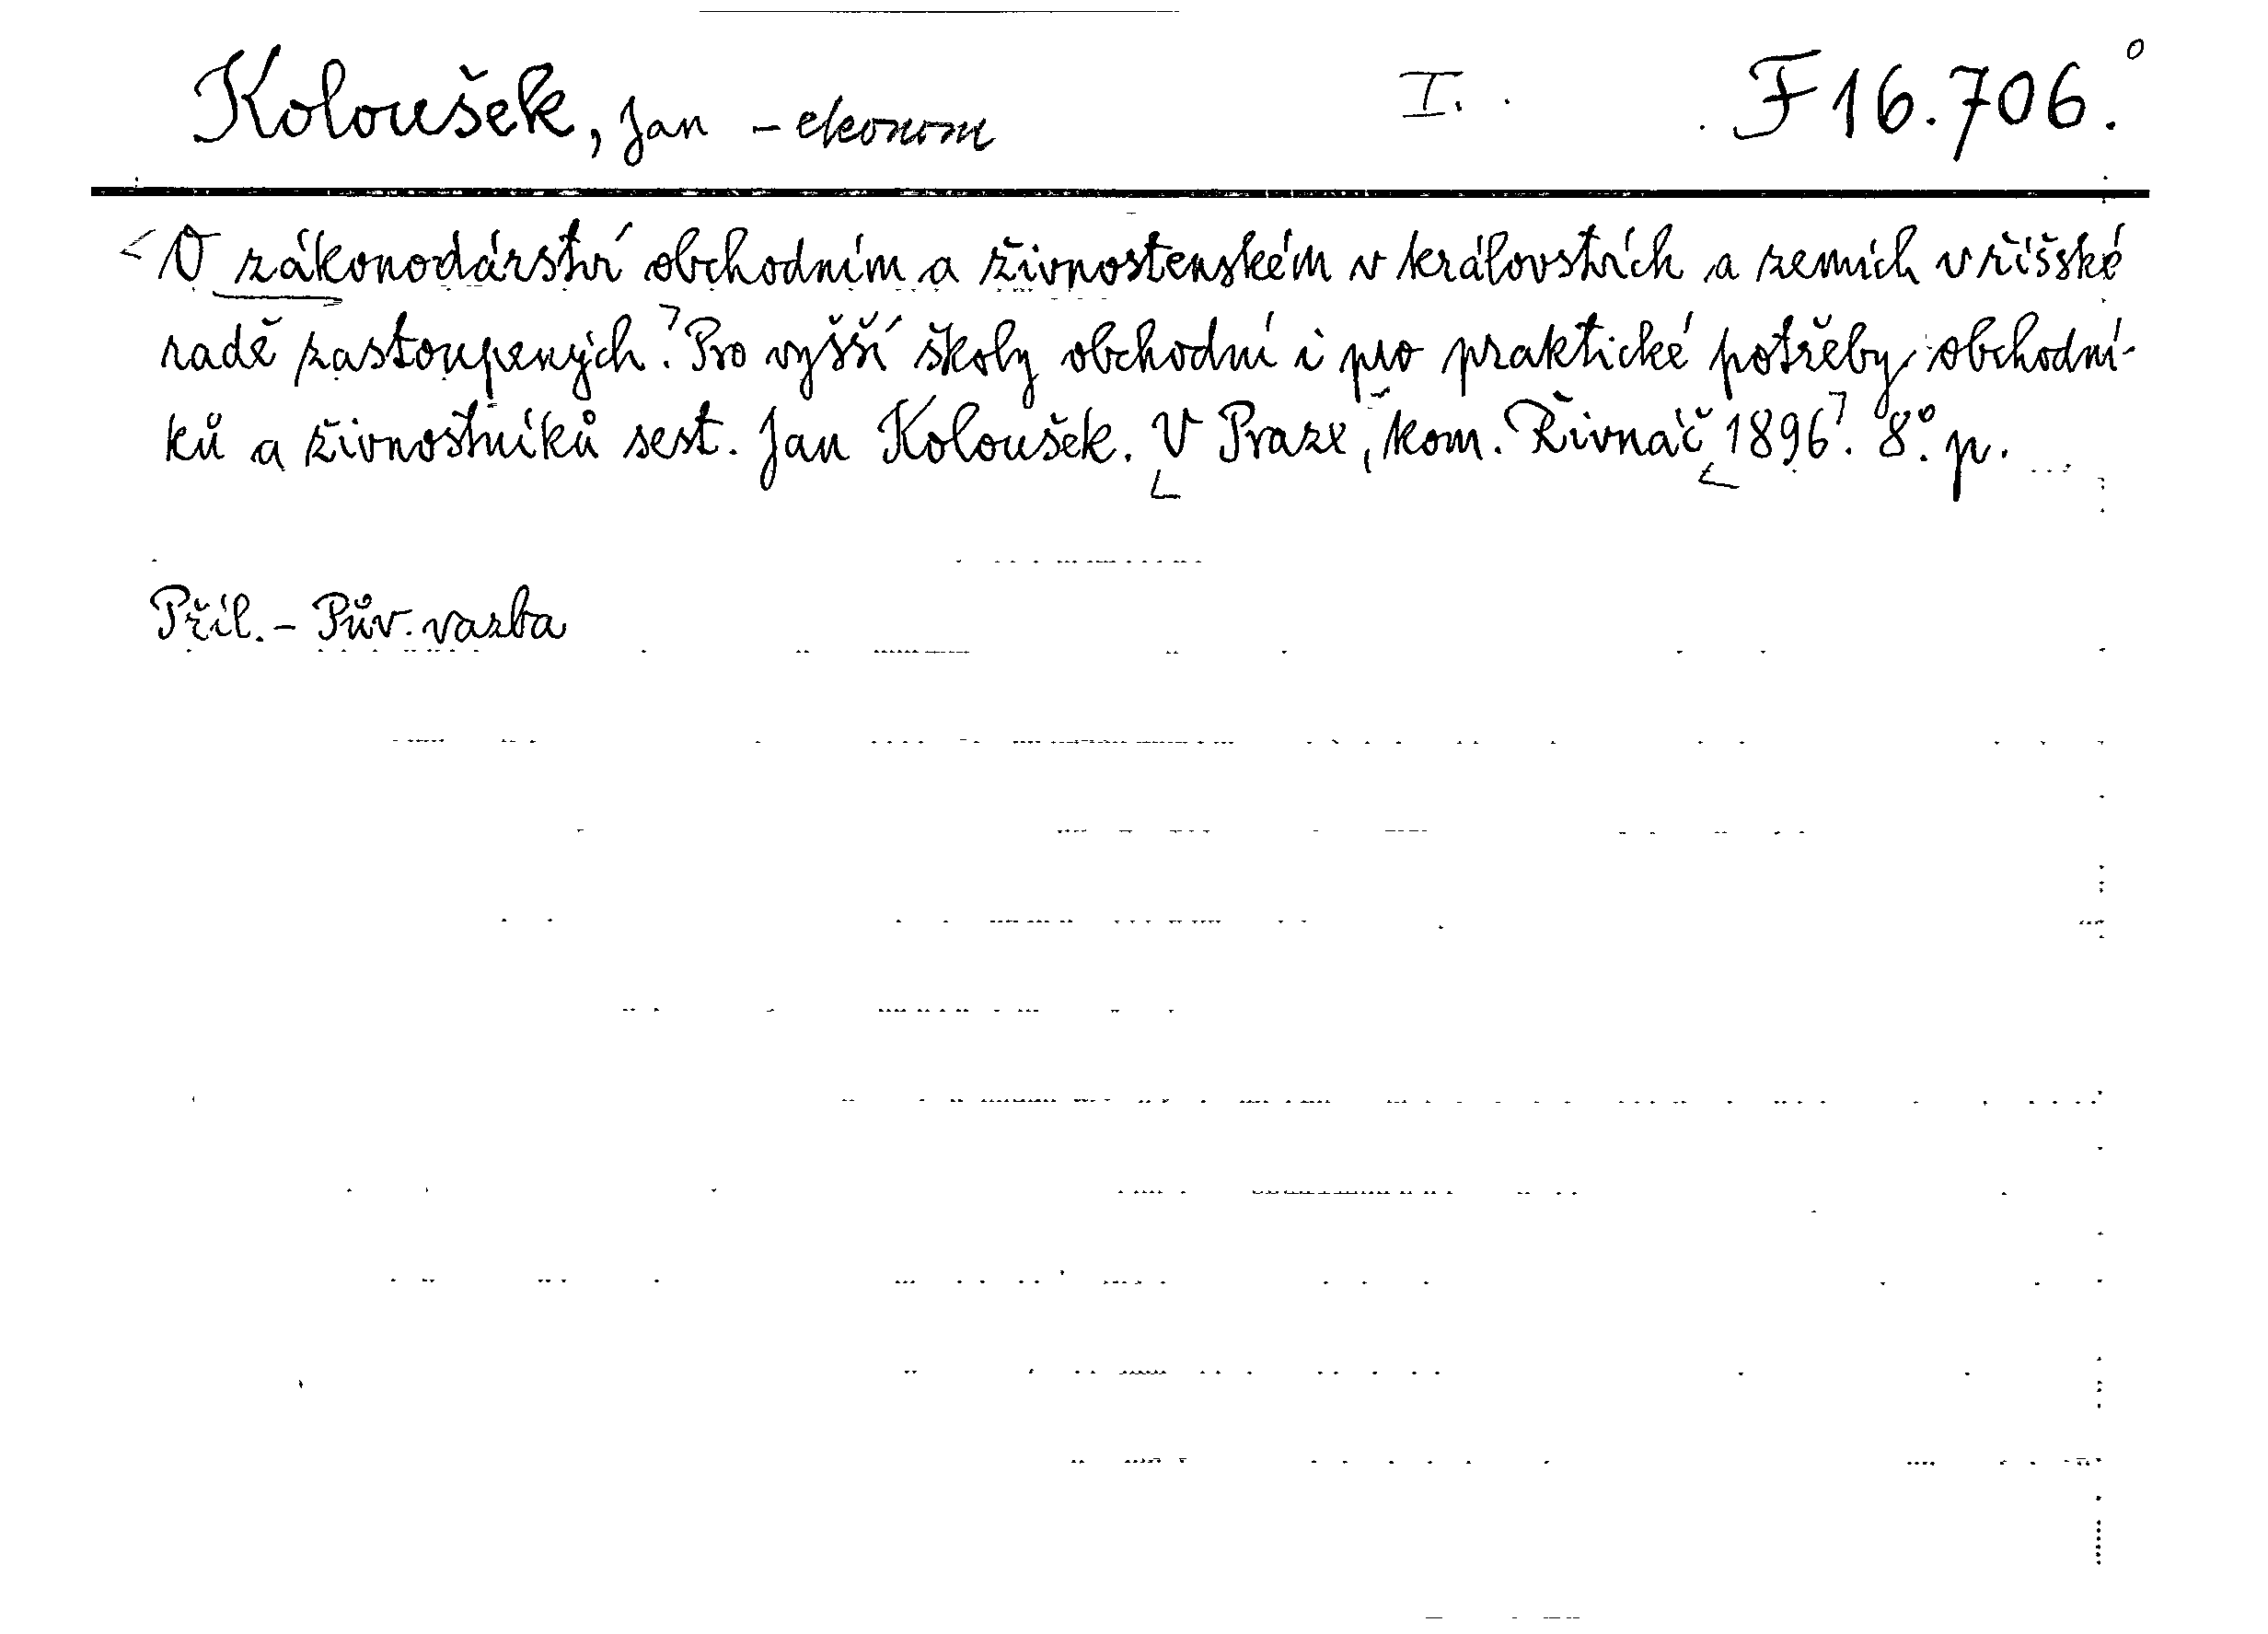 Koloušek, Jan – ekonom I. F 16.706.°
O zákonodárství obchodním a živnostenském v královstvích a zemích v říšské
radě zastoupených. Pro vyšší školy obchodní i pro praktické potřeby obchodní-
ků a živnostníků sest. Jan Koloušek. V Praze, kom. Řivnáč 1896. 8°. p.
Příl. – Pův. vazba